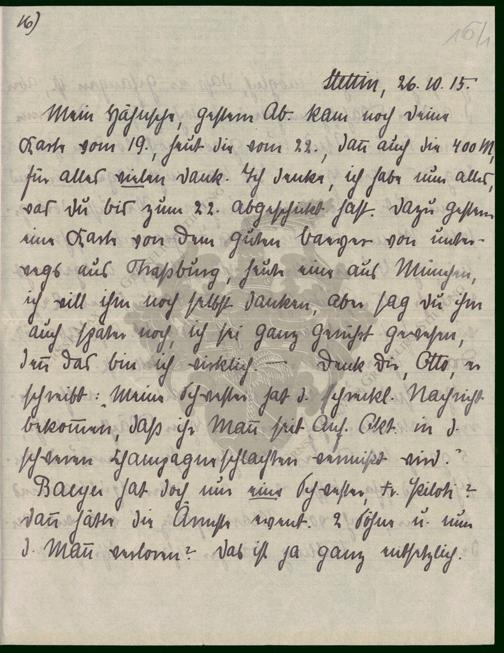 16)
16/1
Stettin, 26.10.15.
Mein Hähnsche, gestern Ab. kam noch deine
Karte vom 19., heut die vom 22., dañ auch die 400 M,
für alles vielen Dank. Ich denke, ich habe nun alles,
was du bis zum 22. abgeschickt hast. Dazu gestern
eine Karte von dem guten Baeyer von unter-
wegs aus Straßburg, heute eine aus München,
ich will ihm noch selbst danken, aber sag du ihm
auch später noch, ich sei ganz gerührt gewesen,
deñ das bin ich wirklich. — Denk dir, Otto, er
schreibt: „Meine Schwester hat d. schreckl. Nachricht
bekom̄en, daß ihr Mañ seit Anf. Okt. in d.
schweren Champagneschlachten vermißt wird."
Baeyer hat doch nur eine Schwester, Fr. Piloti?
dañ hätte die Ärmste event. 2 Söhne u. nun
d. Mañ verloren? Das ist ja ganz entsetzlich.